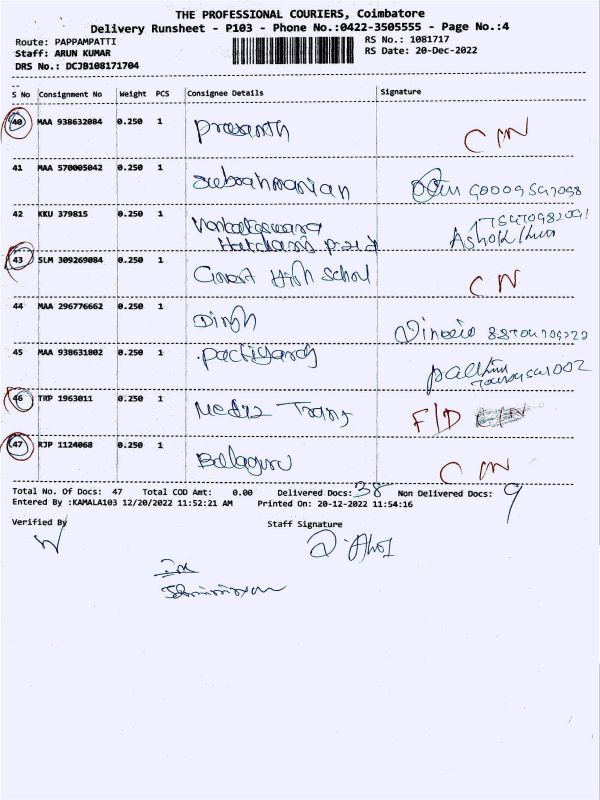 THE PROFESSIONAL COURIERS, Coimbatore
Delivery Runsheet - P103 - Phone No.:0422-3505555 - Page No.:4
Route: PAPPAMPATTI RS No.: 1081717
Staff: ARUN KUMAR RS Date: 20-Dec-2022
DRS No.: DCJB108171704
S No Consignment No Weight PCS Consignee Details Signature
40 MAA 938632084 0.250 1 Prasanth C/N
41 MAA 570005042 0.250 1 Subrahmanian
42 KKU 379815 0.250 1 Venkateswara
Ashok
43 SLM 309269084 0.250 1 Govt High School C/N
44 MAA 296776662 0.250 1
45 MAA 938631802 0.250 1
46 TRP 1963011 0.250 1 Trans F/D
47 RJP 1124068 0.250 1 Balaguru C/N
Total No. Of Docs: 47 Total COD Amt: 0.00 Delivered Docs: 38 Non Delivered Docs: 9
Entered By :KAMALA103 12/20/2022 11:52:21 AM Printed On: 20-12-2022 11:54:16
Verified By Staff Signature